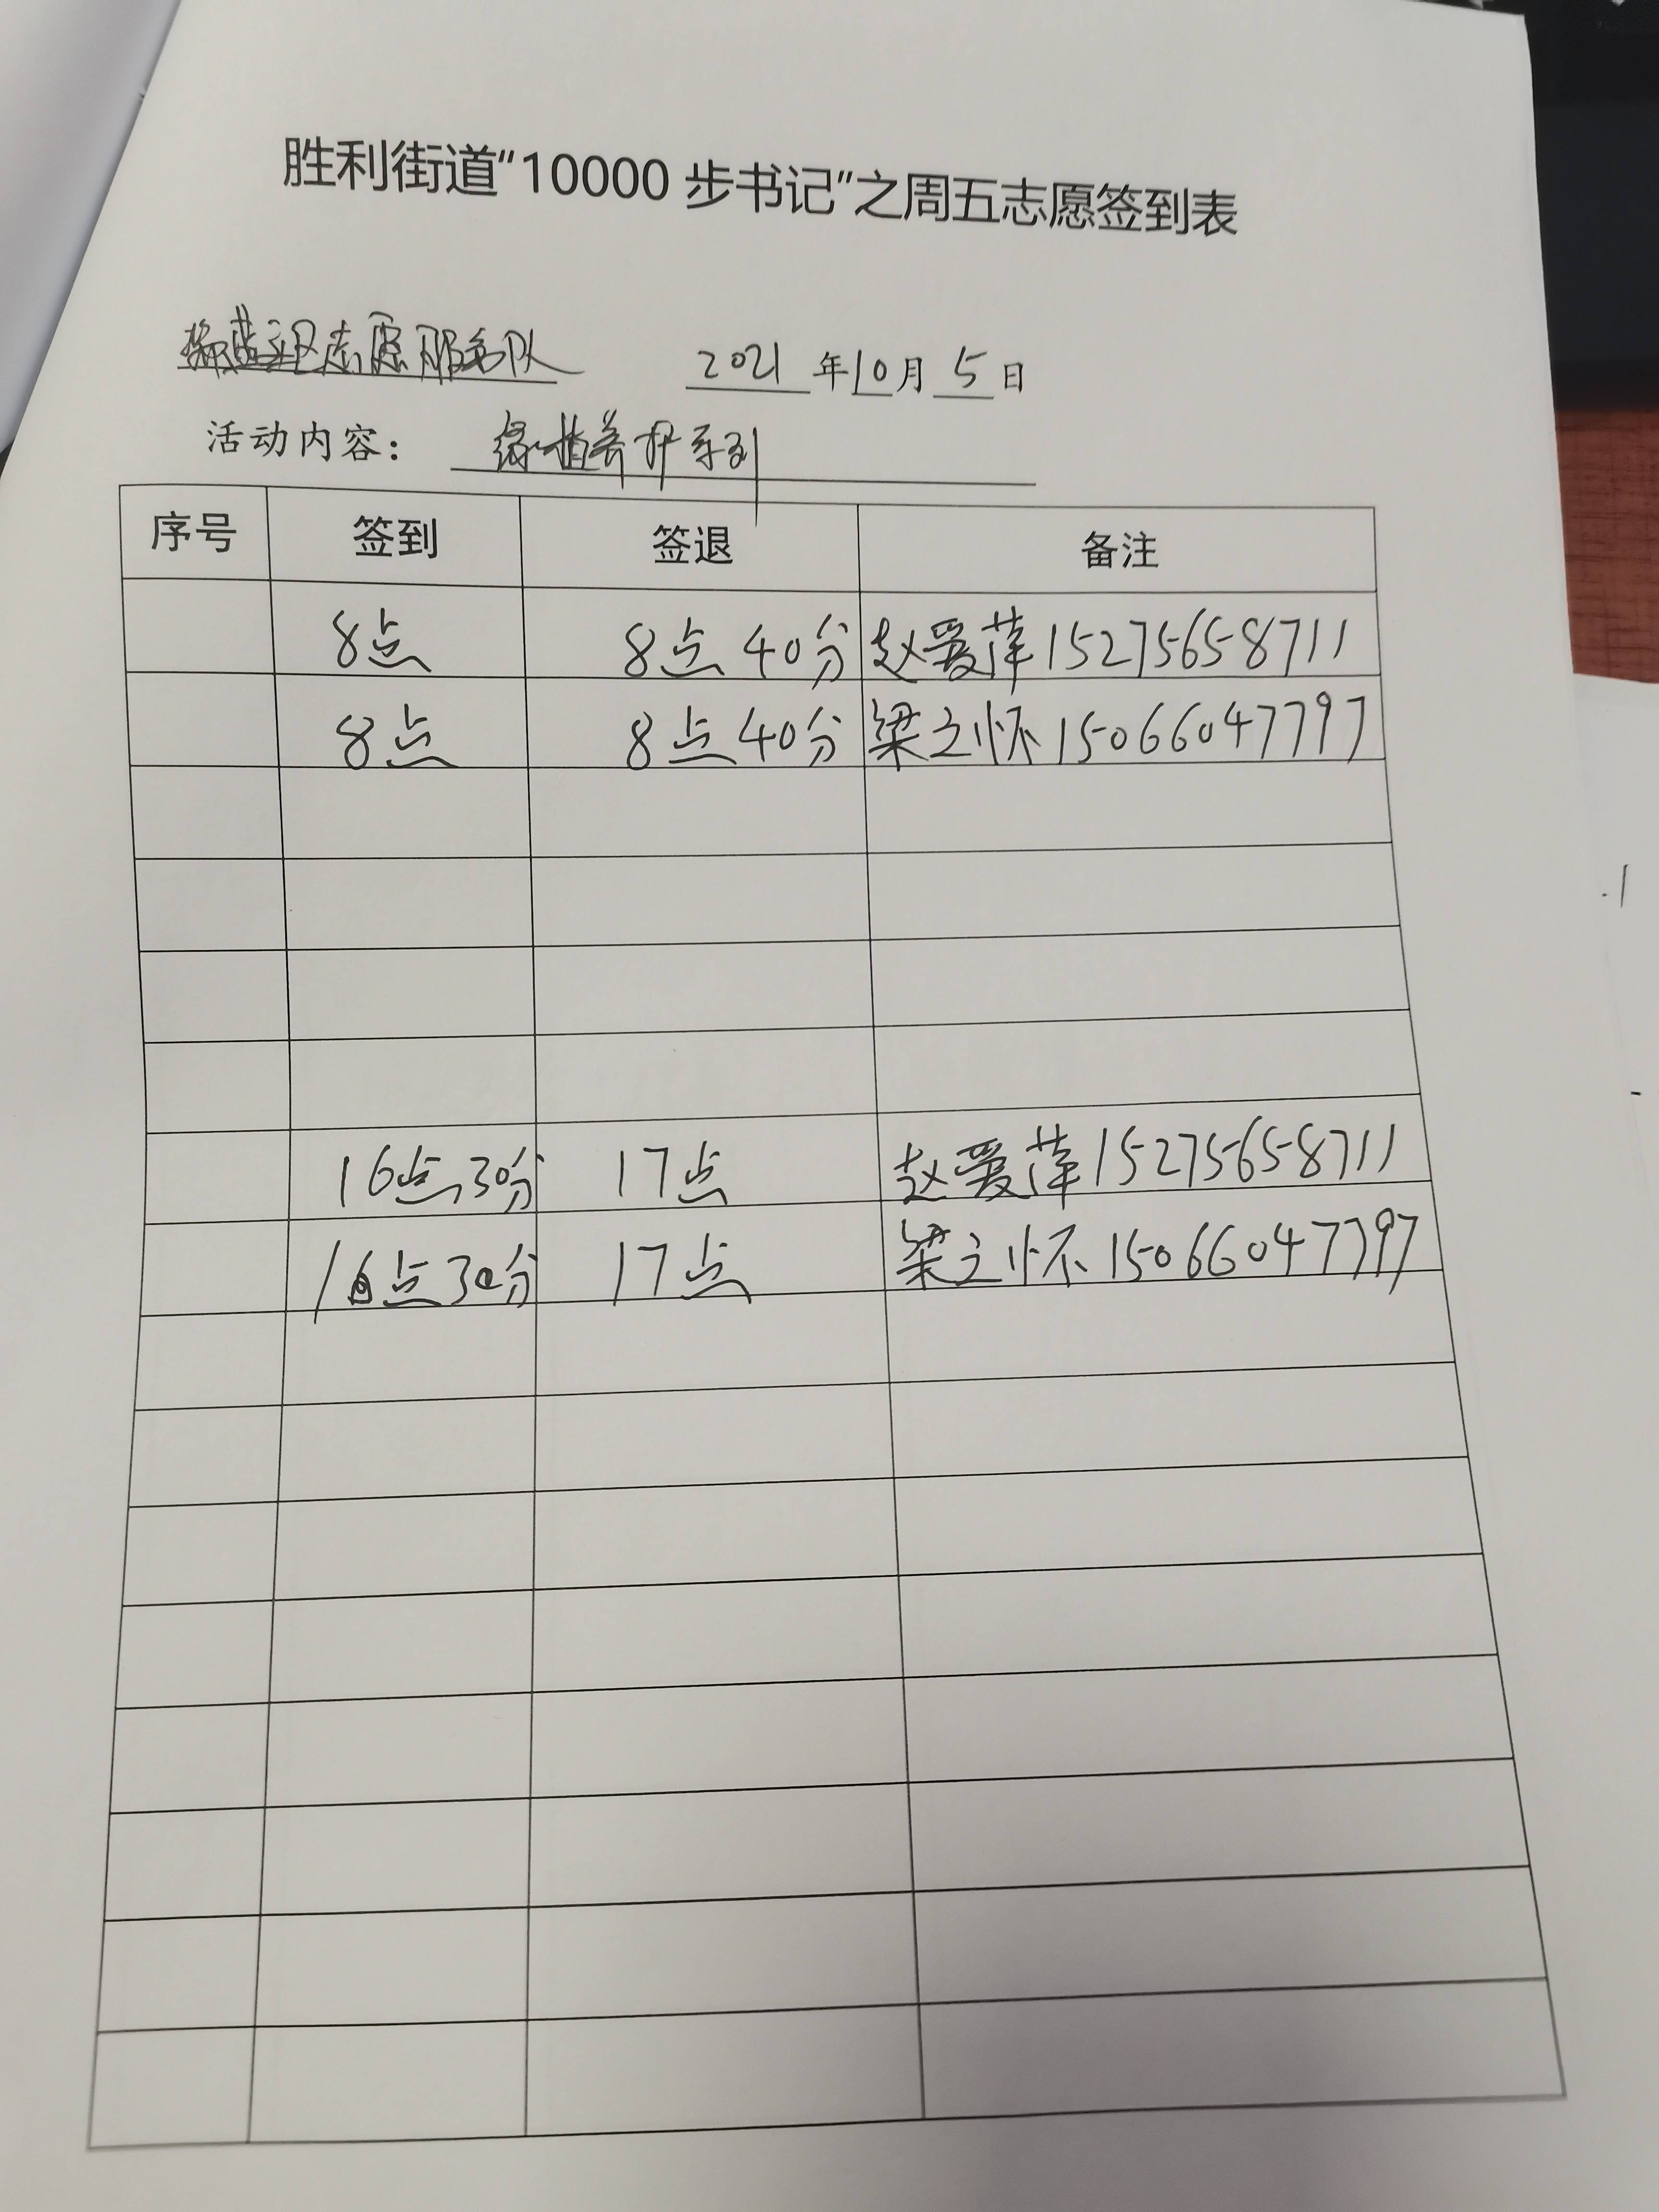 胜利街道“10000 步书记”之周五志愿签到表
志愿服务队 2021 年 10 月 5 日
活动内容： 绿植养护系列
序号 签到 签退 备注
8点 8点40分 赵爱萍 15275658711
8点 8点40分 梁之怀 15066047797
16点30分 17点 赵爱萍 15275658711
16点30分 17点 梁之怀 15066047797